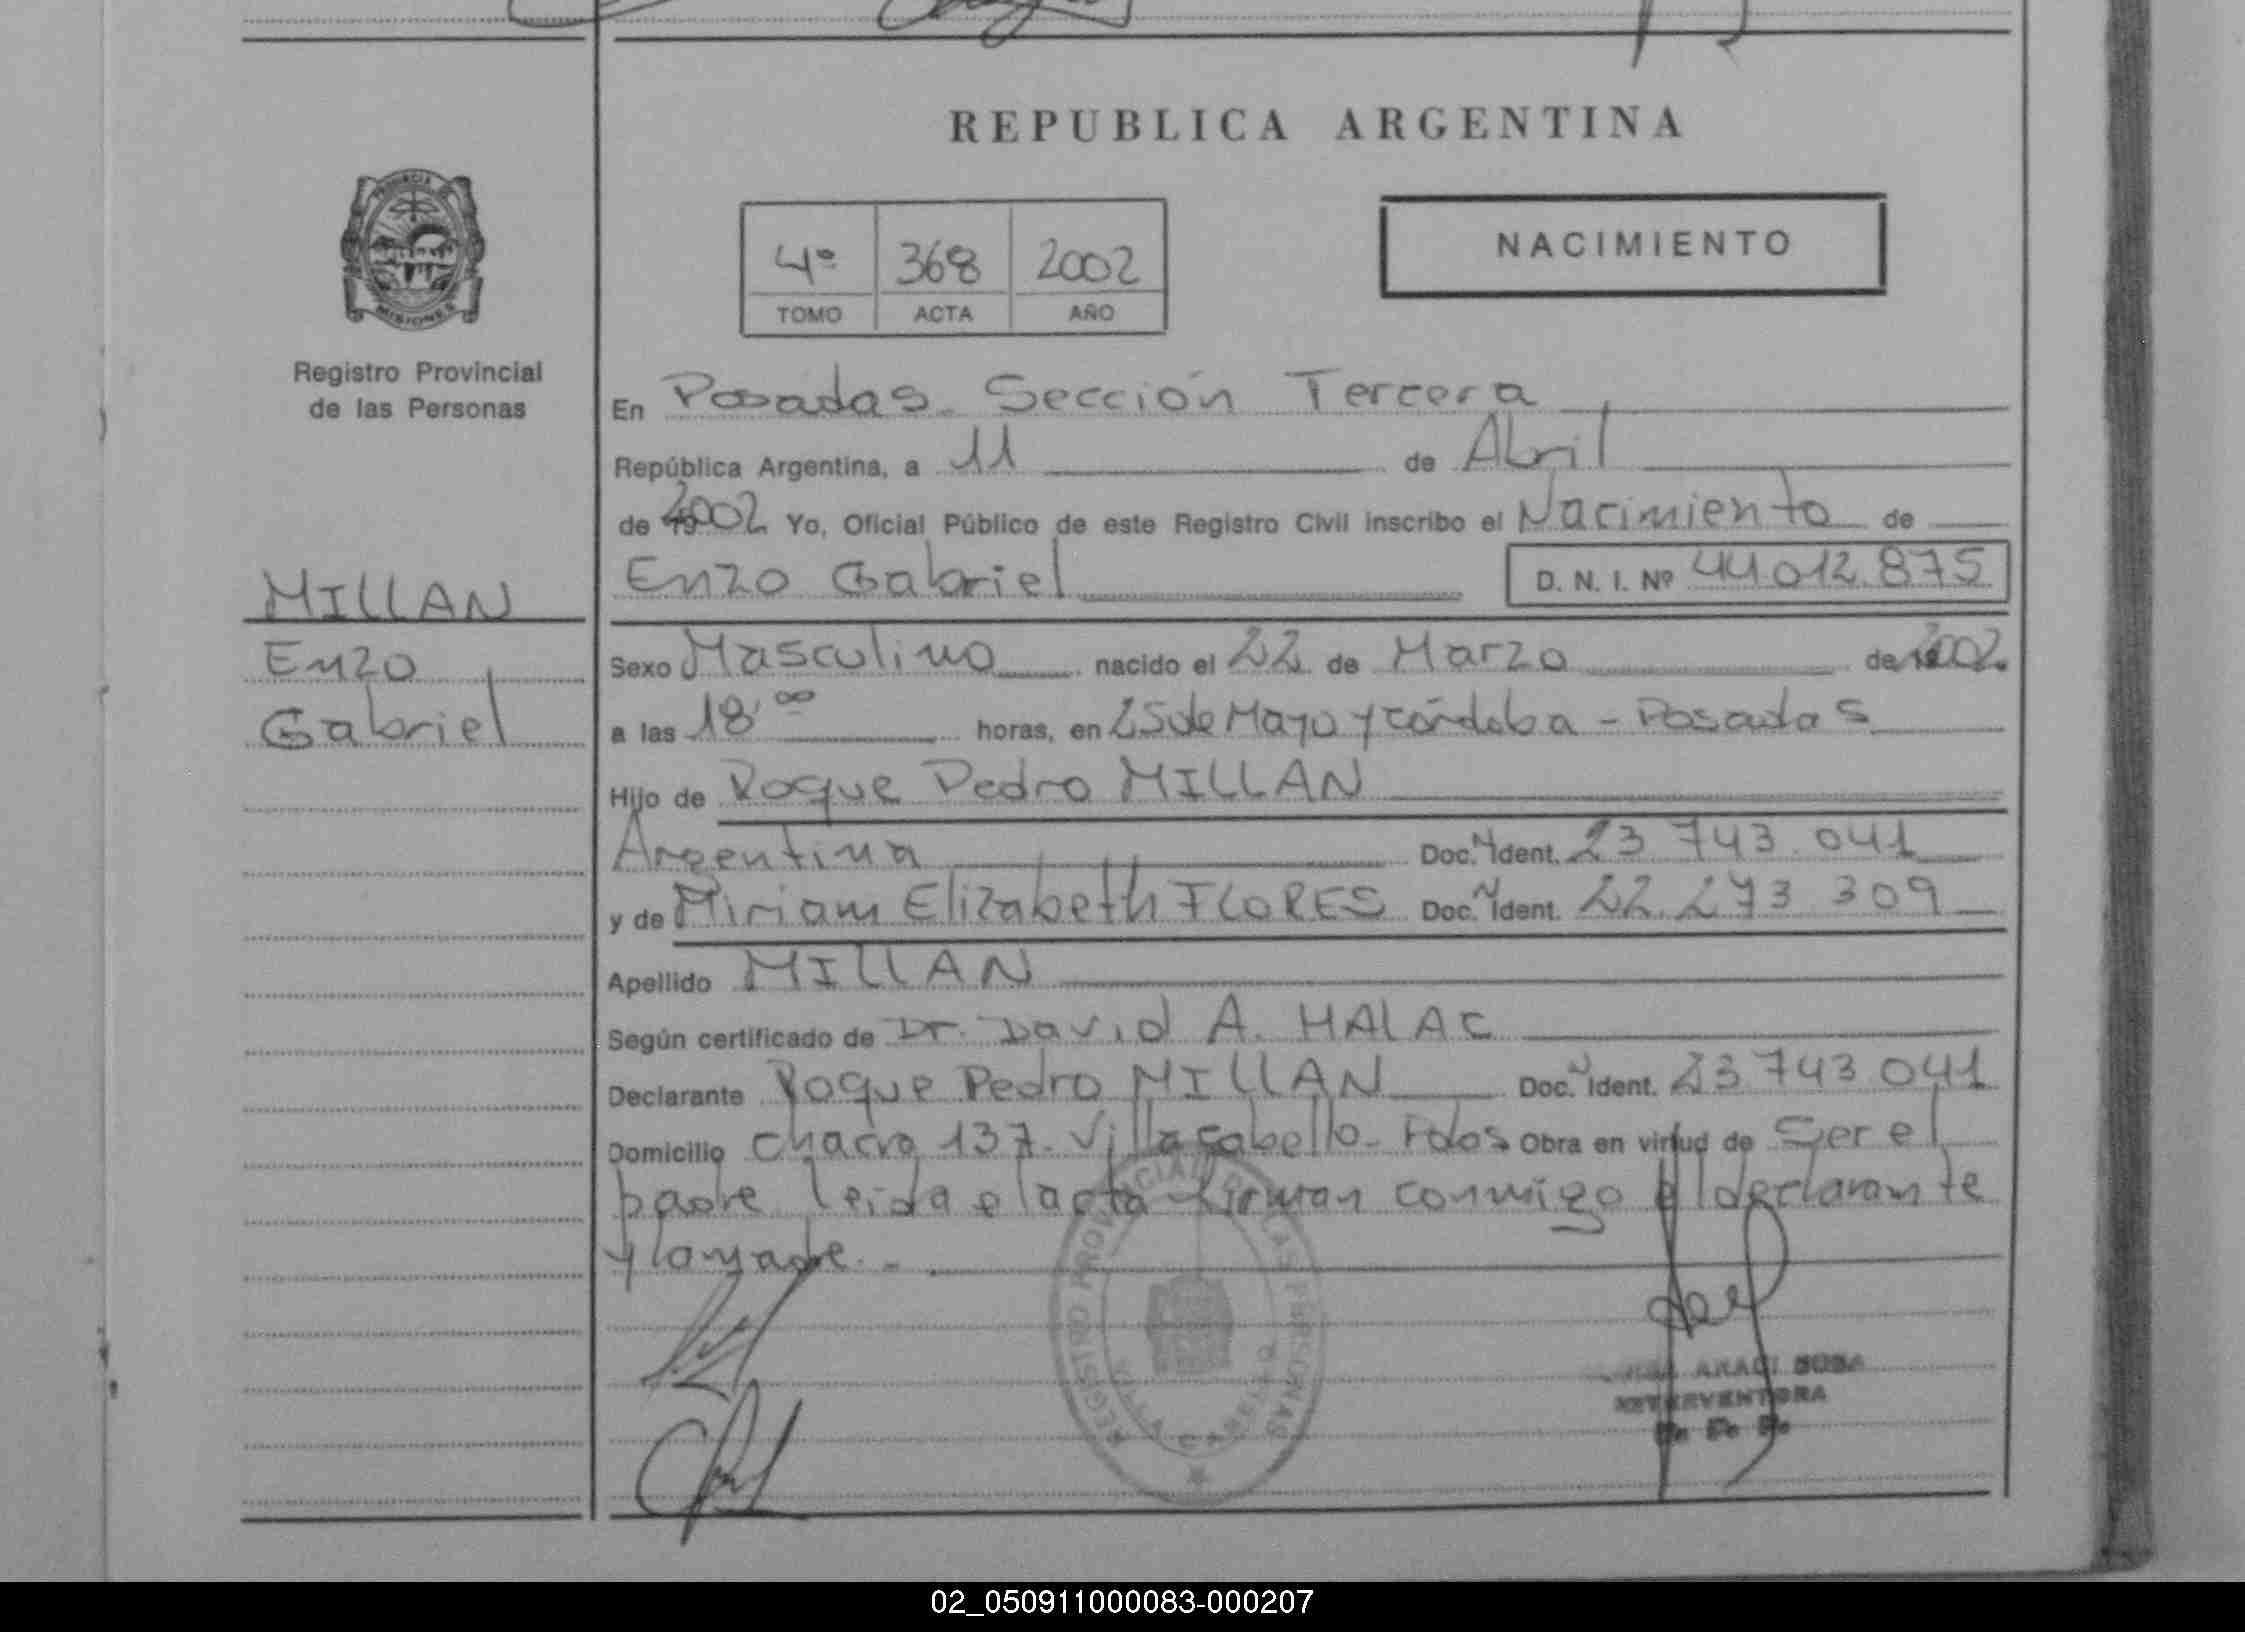 REPUBLICA ARGENTINA
PROVINCIA DE
MISIONES
Registro Provincial
de las Personas
4º 368 2002
TOMO ACTA AÑO
NACIMIENTO
En Posadas. Sección Tercera
República Argentina, a 11 de Abril
de 2002 Yo, Oficial Público de este Registro Civil inscribo el Nacimiento de
Enzo Gabriel D. N. I. Nº 44.012.875
MILLAN
Enzo
Gabriel
Sexo Masculino nacido el 22 de Marzo de 2002
a las 18,00 horas, en 25 de Mayo y córdoba - Posadas
Hijo de Roque Pedro MILLAN
Argentina Doc. N Ident. 23 743.041
y de Miriam Elizabeth FLORES Doc. N Ident. 22.273 309
Apellido MILLAN
Según certificado de Dr. David A. HALAC
Declarante Roque Pedro MILLAN Doc. N Ident. 23 743 041
Domicilio chacra 137. Villa Cabello - Pdas Obra en virtud de Ser el
padre leida el acta firman conmigo el declarante
y la madre. -
REGISTRO PROVINCIAL DE LAS PERSONAS
VILLA CABELLO
ARACI SOSA
INTERVENTORA
02_050911000083-000207